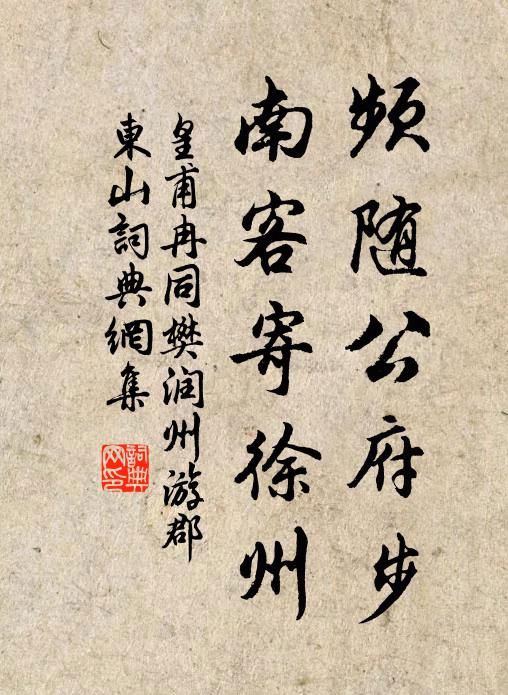 頻随公府步
南客寄徐州
皇甫冉同樊润州游郡
東山詞典網集
詞典
网印